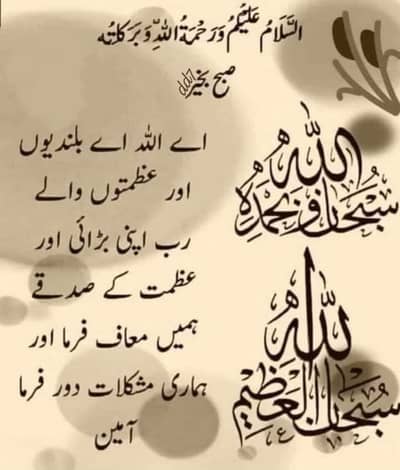 السَّلَامُ عَلَيْكُمْ وَرَحْمَةُ اللهِ وَبَرَكَاتُهُ
صبح بخیر
اے اللہ اے بلندیوں
اور عظمتوں والے
رب اپنی بڑائی اور
عظمت کے صدقے
ہمیں معاف فرما اور
ہماری مشکلات دور فرما
آمین
سُبْحَانَ اللهِ وَبِحَمْدِهِ
سُبْحَانَ اللهِ الْعَظِيمِ